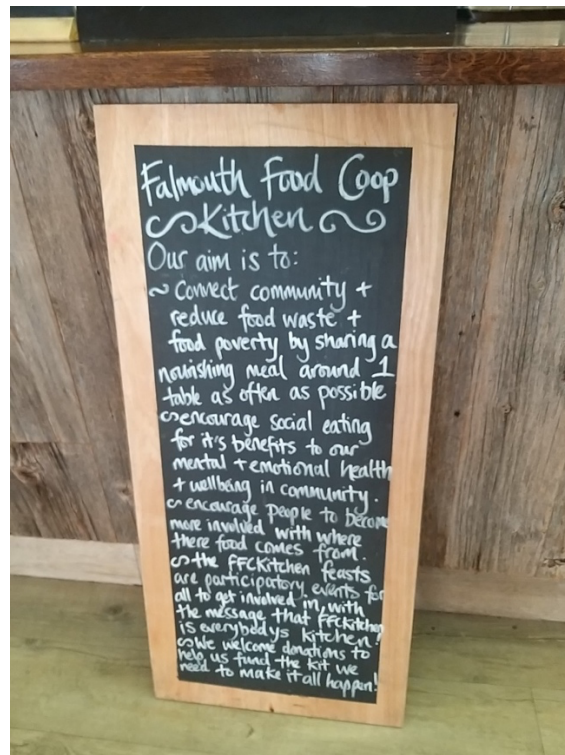 Falmouth Food Coop
Kitchen
Our aim is to:
~ Connect community +
reduce food waste +
food poverty by sharing a
nourishing meal around 1
table as often as possible
~ encourage social eating
for it's benefits to our
mental + emotional health
+ wellbeing in community.
~ encourage people to become
more involved with where
there food comes from.
~ the FFCKitchen feasts
are participatory events for
all to get involved in, with
the message that FFCKitchen
is everybodys kitchen!
~ We welcome donations to
help us fund the kit we
need to make it all happen!